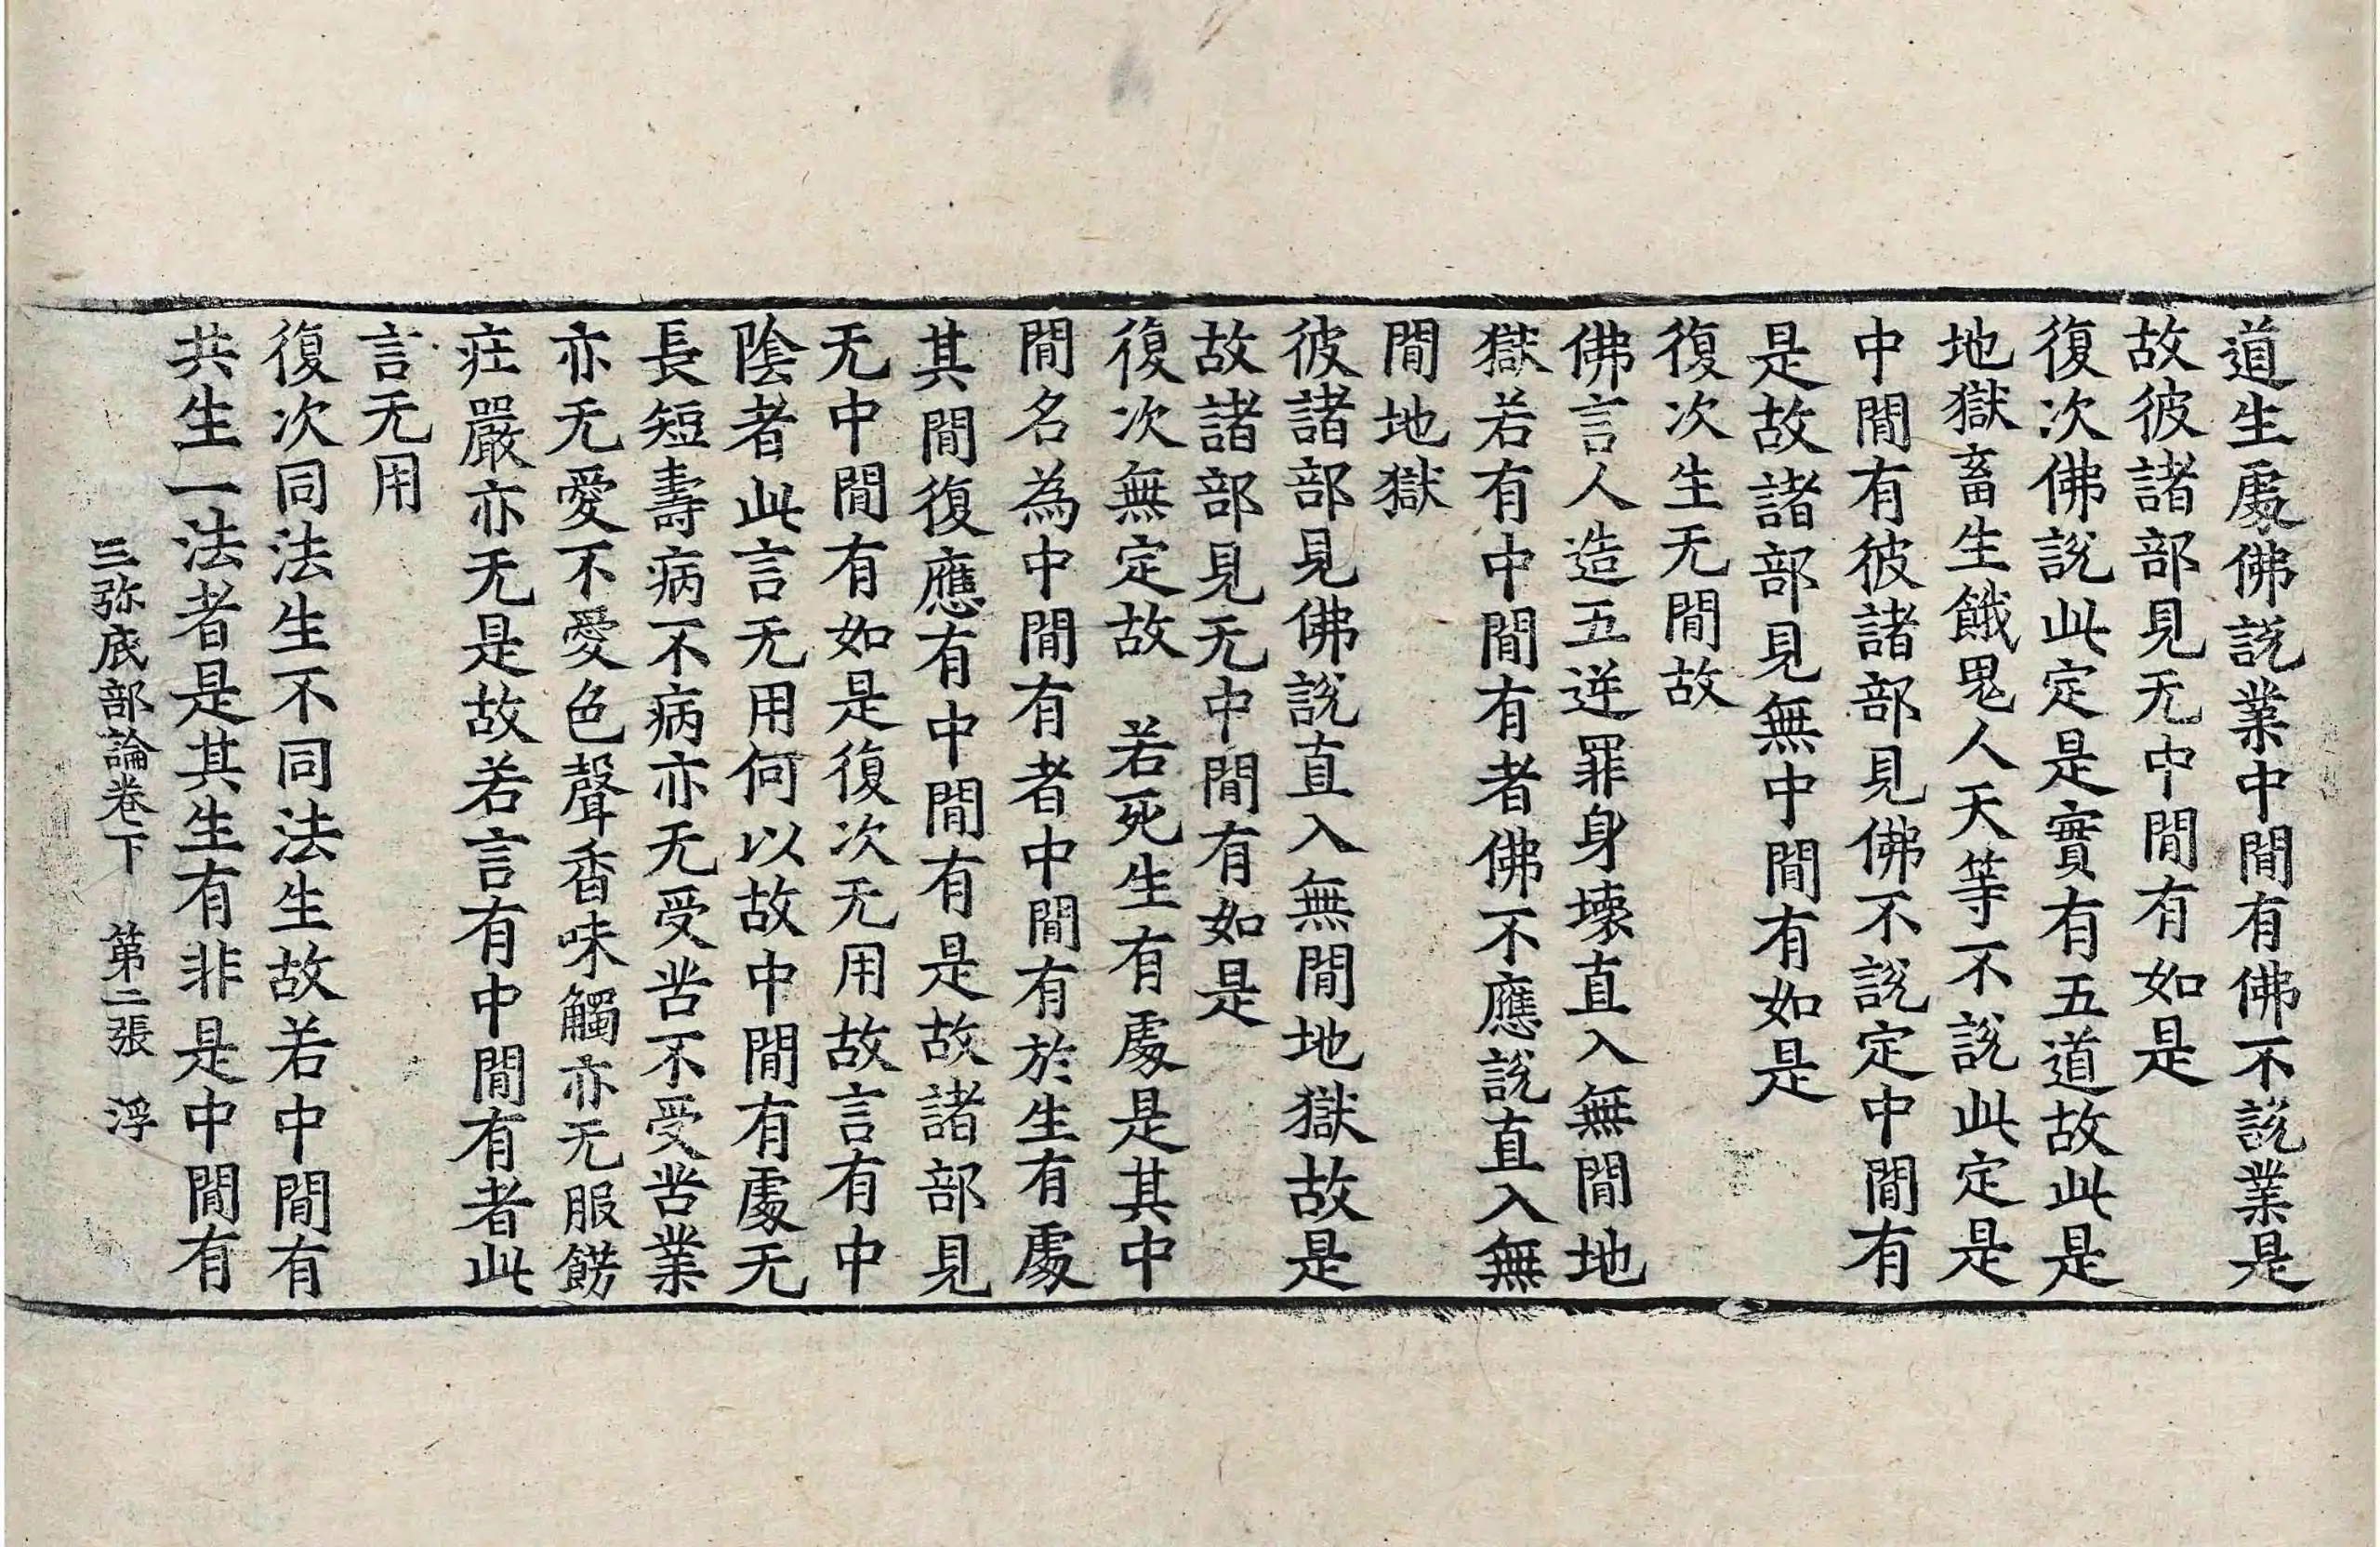 道生處佛說業中間有佛不說業是
故彼諸部見无中間有如是
復次佛說此定是實有五道故此是
地獄畜生餓鬼人天等不說此定是
中間有彼諸部見佛不說定中間有
是故諸部見無中間有如是
復次生无間故
佛言人造五逆罪身壞直入無間地
獄若有中間有者佛不應說直入無
間地獄
彼諸部見佛說直入無間地獄故是
故諸部見无中間有如是
復次無定故　若死生有處是其中
間名為中間有者中間有於生有處
其間復應有中間有是故諸部見
无中間有如是復次无用故言有中
陰者此言无用何以故中間有處无
長短壽病不病亦无受苦不受苦業
亦无愛不愛色聲香味觸亦无服餝
庄嚴亦无是故若言有中間有者此
言无用
復次同法生不同法生故若中間有
共生一法者是其生有非是中間有
三弥底部論卷下　第二張　浮